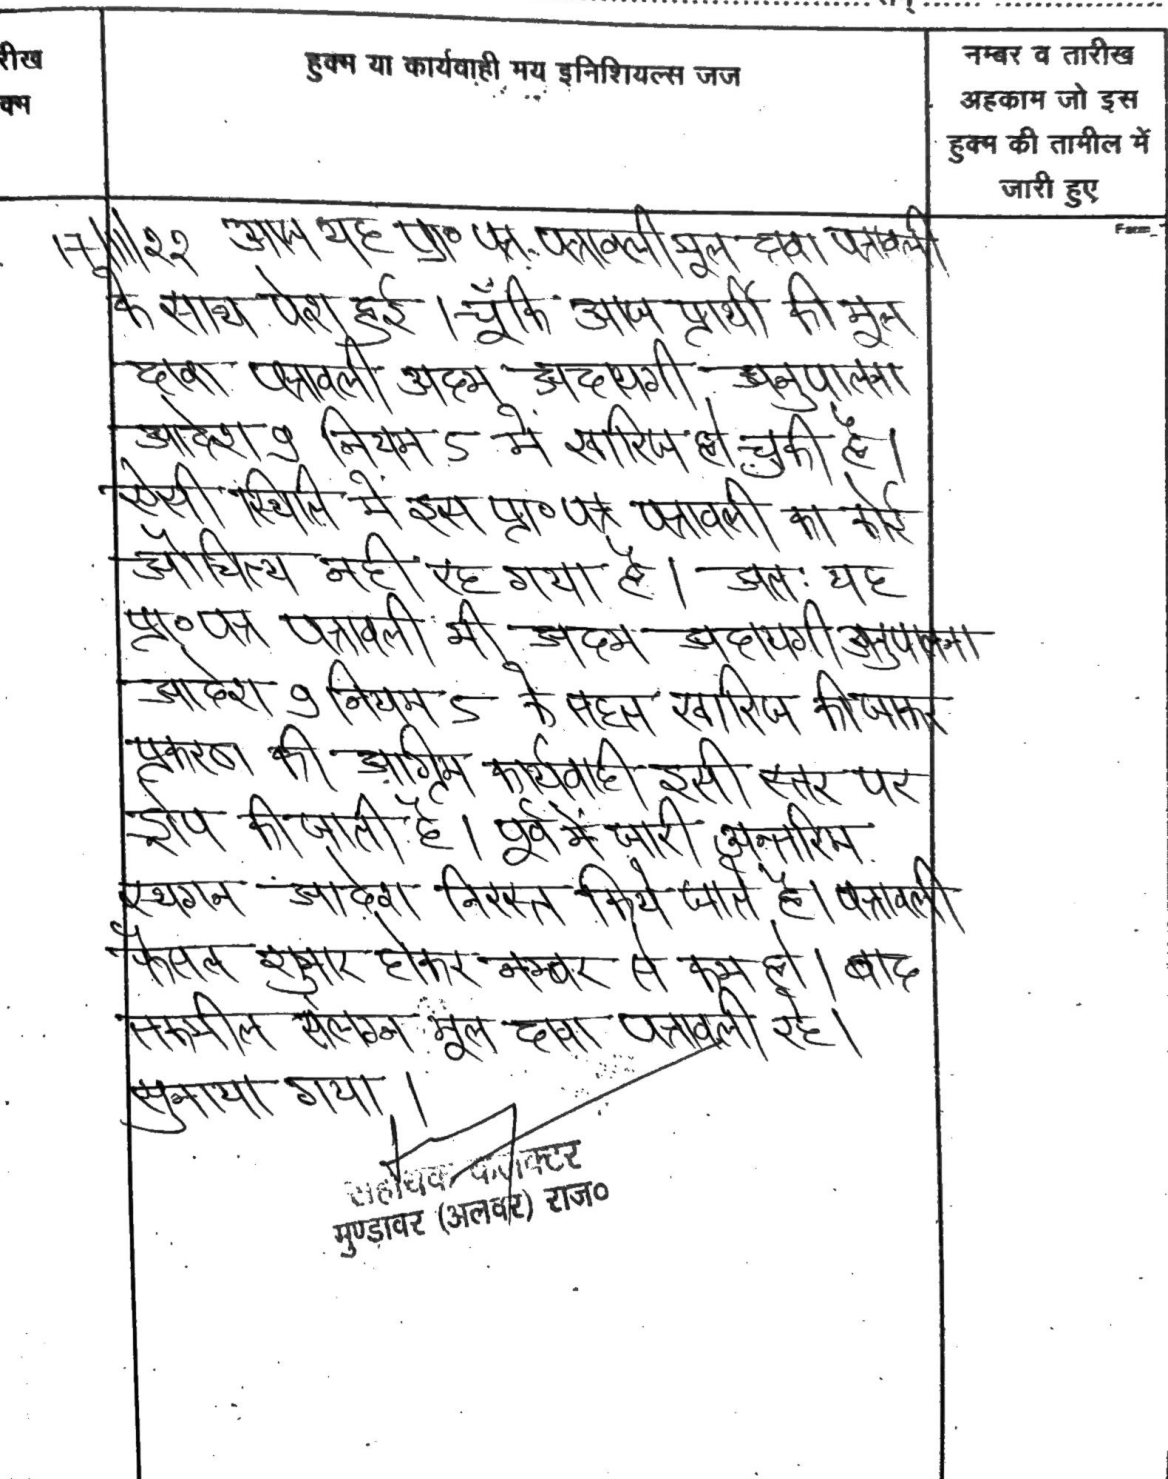 रीख
क्म
हुक्म या कार्यवाही मय इनिशियल्स जज
नम्बर व तारीख
अहकाम जो इस
हुक्म की तामील में
जारी हुए
17/11/22 आज यह प्रा० पत्र पत्रावली मूल दावा पत्रावली
के साथ पेश हुई । चूँकि आज प्रार्थी की मूल
दावा पत्रावली अदम अदायगी अनुपालना
आदेश 9 नियम 5 में खारिज हो चुकी है ।
ऐसी स्थिति में इस प्रा० पत्र पत्रावली का कोई
औचित्य नही रह गया है । अतः यह
प्रा० पत्र पत्रावली भी अदम अदायगी अनुपालना
आदेश 9 नियम 5 के तहत खारिज की जाकर
प्रकरण की अग्रिम कार्यवाही इसी स्तर पर
ड्रोप की जाती है । पूर्व में जारी अन्तरिम
स्थगन आदेश निरस्त किये जाते है । पत्रावली
फैसल शुमार होकर नम्बर से कम हो । बाद
तकमील संलग्न मूल दावा पत्रावली रहे ।
सुनाया गया ।
सहायक कलक्टर
मुण्डावर (अलवर) राज०